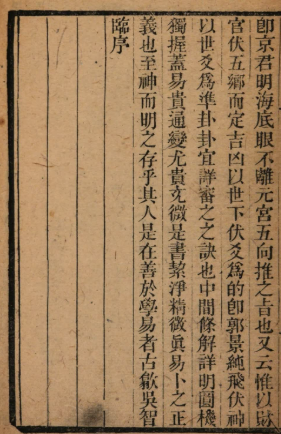 卽京君明海底眼不離元宮五向推之旨也又云惟以財
官伏五鄉而定吉凶以世下伏爻爲的卽郭景純飛伏神
以世爻爲準卦卦宜詳審之之訣也中間條解詳明圓機
獨握蓋易貴通變尤貴充微是書絜淨精微眞易卜之正
義也至神而明之存乎其人是在善於學易者古歙吳智
臨序